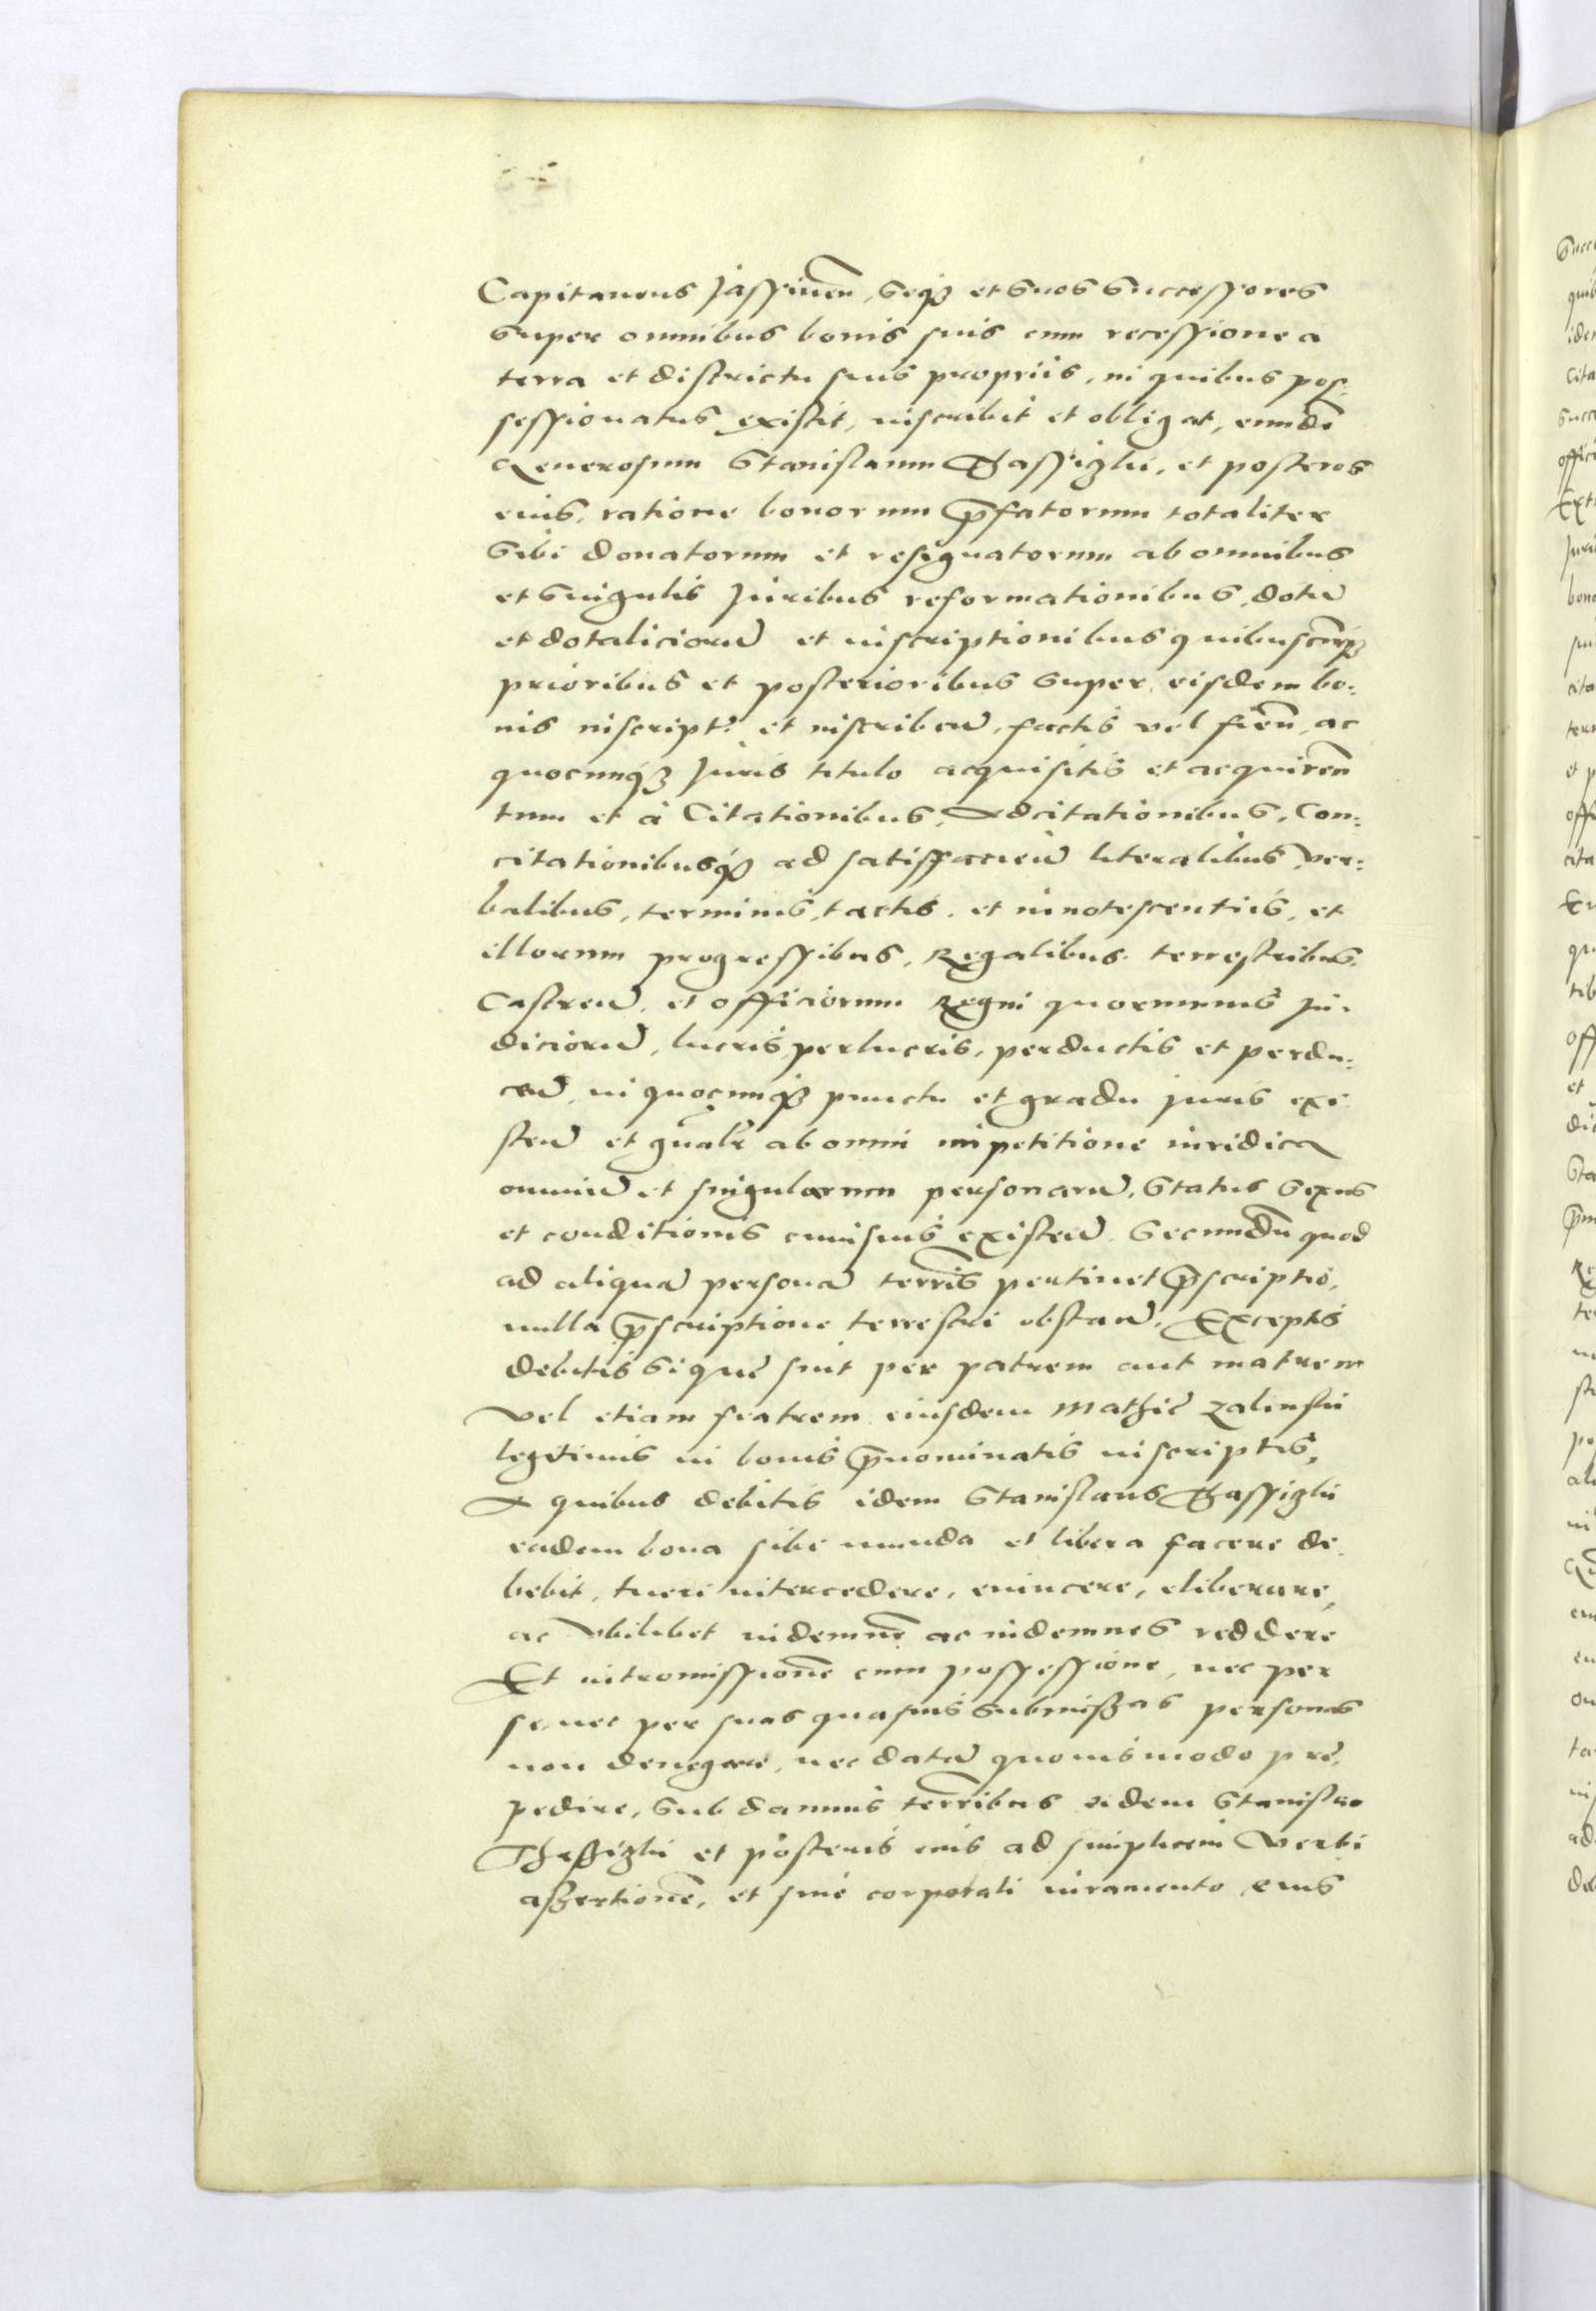 Capitaneus Jassinen, seq3 et suos successores
super omnibus bonis suis cum recessione a
terra et districtu suis propriis, in quibus pos:
sessionatus existit, inscribit et obligat, eundē
Generosum Stanislaum Thassizki, et posteros
eius, ratione bonorum p̄fatorum totaliter
sibi donatorum et resignatorum ab omnibus
et singulis Juribus reformationibus, dotiū
et dotalicioru̅ et inscriptionibus quibuscūq3
prioribus et posterioribus super eisdem bo:
nis inscript: et inscriben̄, factis vel fien̄, ac
quocunq3 Juris titulo acquisitis et acquiren̄
tum et à Citationibus, Adcitationibus, Con:
citationibusq3 ad satisfacien̄ literalibus, ver:
balibus, terminis, tactis, et innotescentiis, et
illorum progressibus, Regalibus, terrestribus,
Castren̄, et officiorum Regni quorumuis Ju:
dicioru̅, lucris, perlucris, perductis et perdu:
cen̄, in quocunq3 punctu et gradu juris exi
sten̄ et gn̄alr̄ ab omni impetitione iuridica
omniu̅ et singularum personaru̅, status sexus
et conditionis cuiusuis existen̄. Secundū quod
ad aliqua̅ persona̅ terrīs pertinet p̄scriptio,
nulla p̄scriptione terrestri obstan̄. Exceptis
debitis si quē sint per patrem aut matrem
vel etiam fratrem eiusdem Mathiē Zalinski
legitimis in bonis p̄nominatis inscriptis,
A quibus debitis idem Stanislaus Thassizki
eadem bona sibi munda et libera facere de
bebit, tueri intercedere, euincere, eliberare,
ac vbilibet indemnē ac indemnes reddere
Et intromissionē cum possessione, nec per
se, nec per suas quasuis submissas personas
non denegare, nec data̅ quouismodo prē,
pedire, sub damnis terrībus eidem Stanislao
Thassizki et posteris eius ad simplicem verbi
assertionē, et sine corporali iuramento, eius